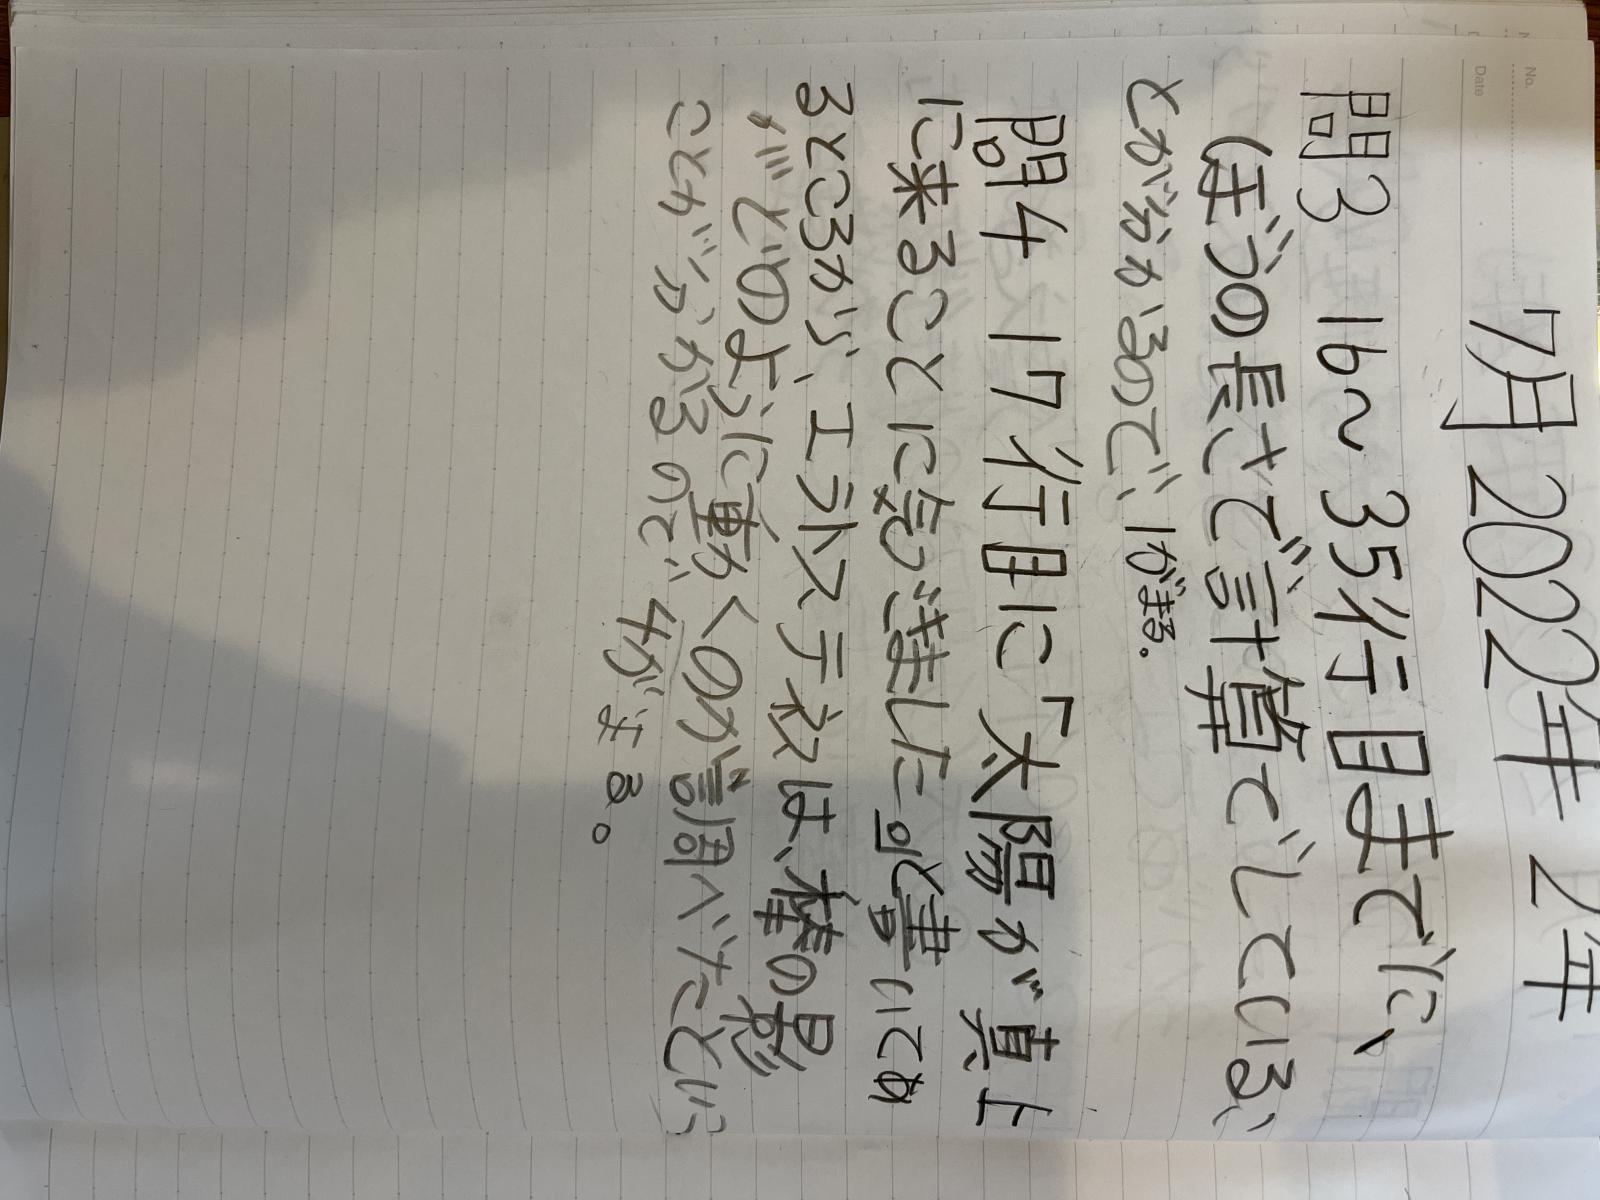 No.
Date
7月2022年 2年
問3 16〜35行目までに、
ほづの長さで計算でしている
とかが分かるので、1がまる。
問4 17行目に「太陽が真上
に来ることに気づきました」と書いてあ
るところから、エラトステネスは、棒の影
がどのように動くのかを調べたという
ことが分かるので 4がまる。